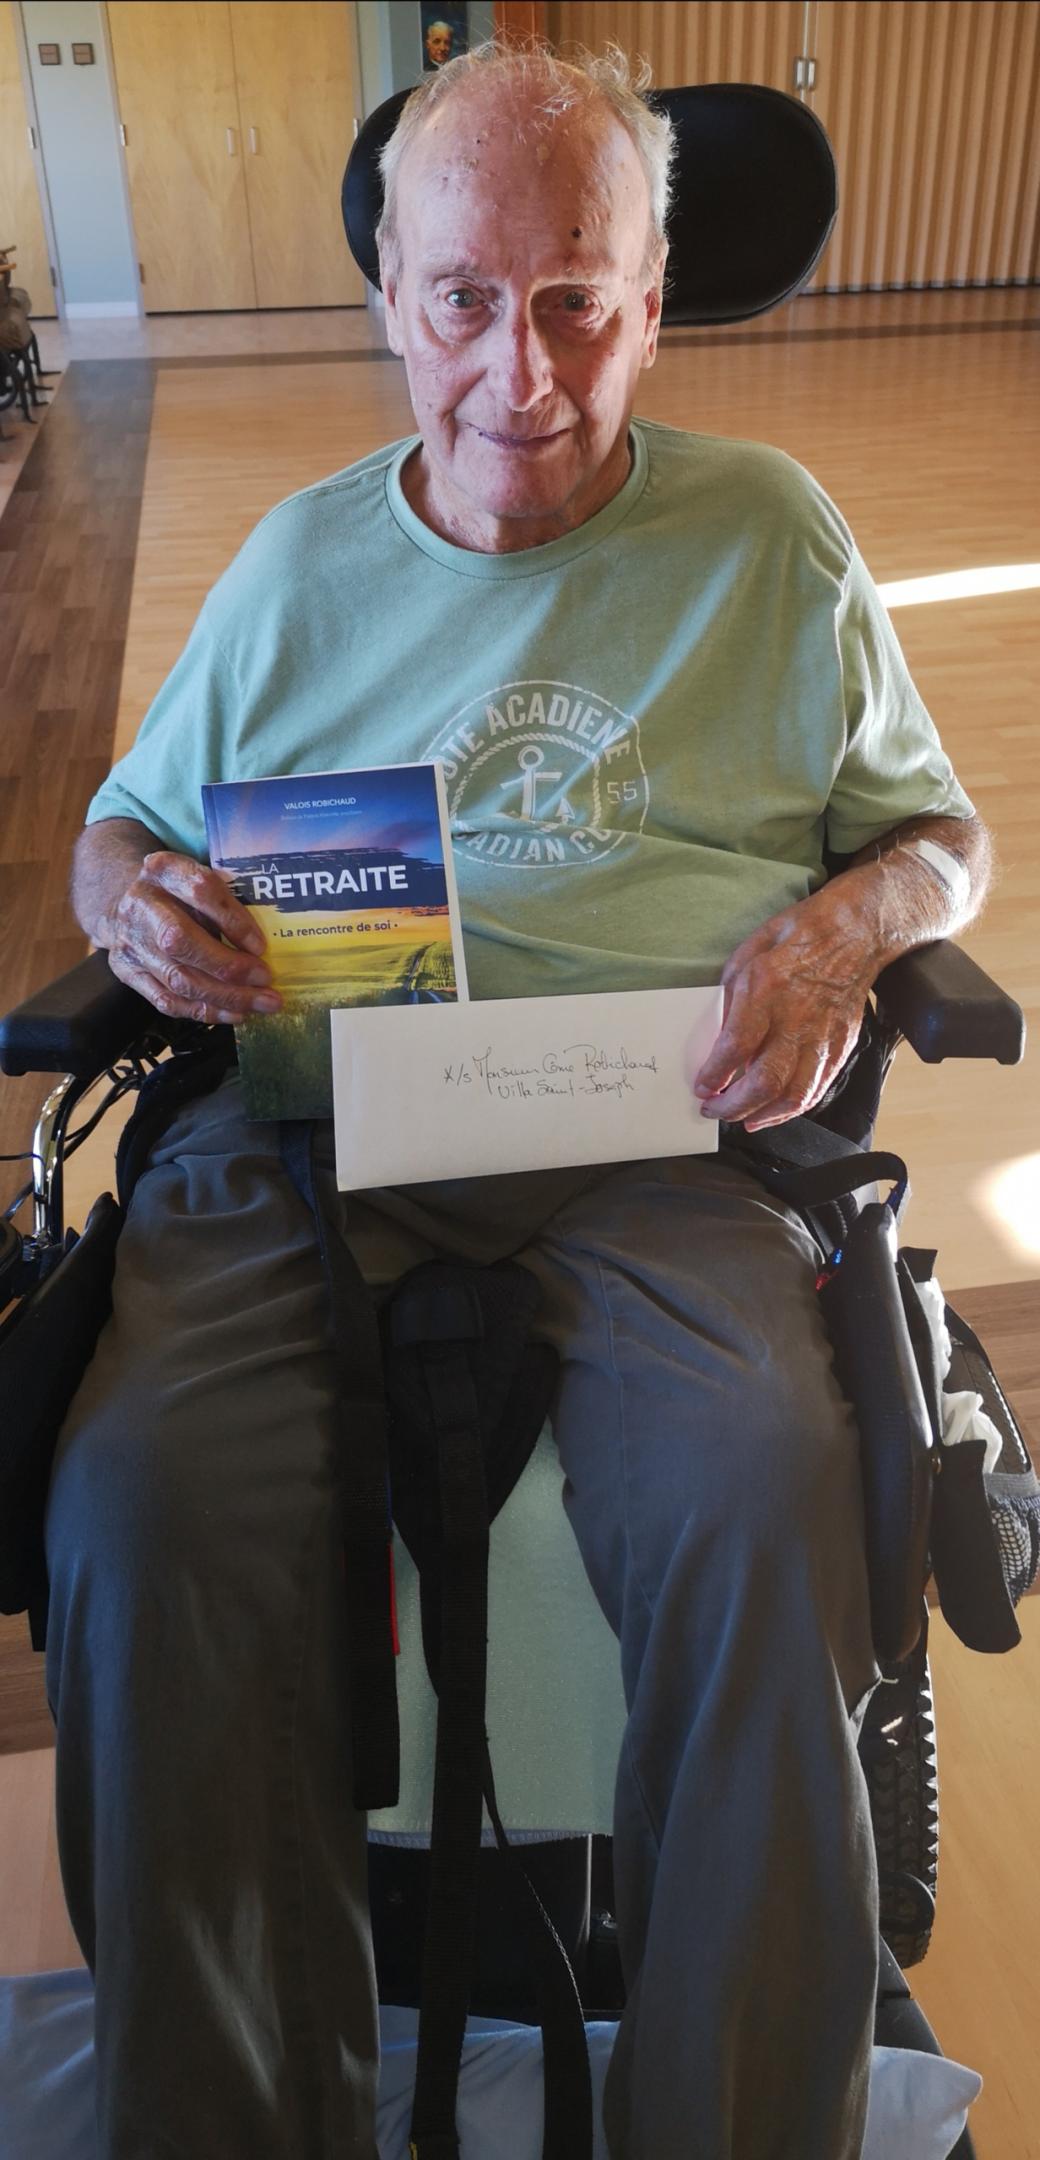 CÔTE ACADIENE
55
ACADIAN CO
VALOIS ROBICHAUD
LA
RETRAITE
• La rencontre de soi •
x/s Monsieur Côme Robichaud
Villa Saint-Joseph